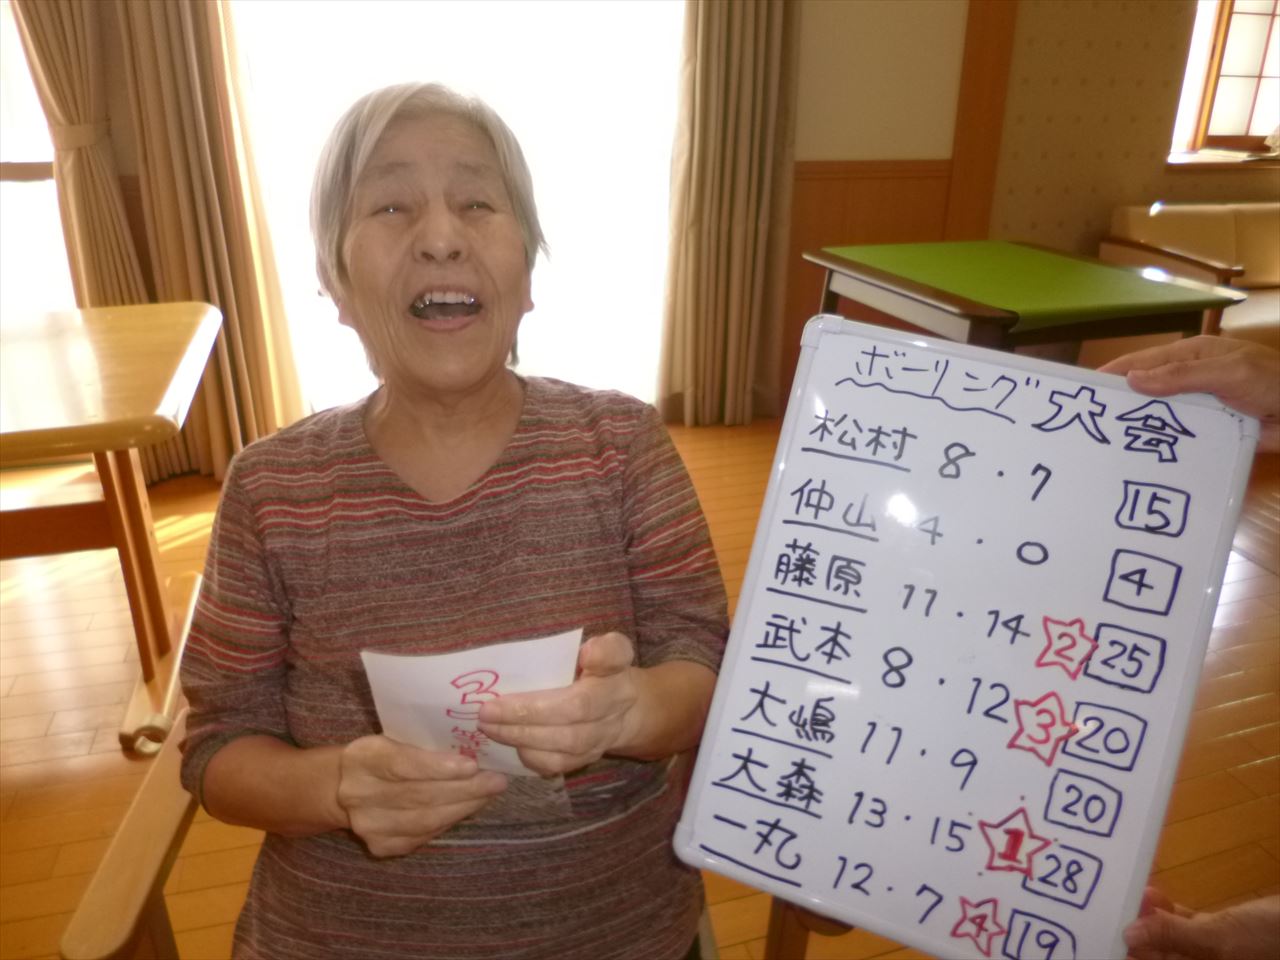 ボーリング大会
松村 8・7 15
仲山 4・0 4
藤原 11・14 2 25
武本 8・12 3 20
大嶋 11・9 20
大森 13・15 1 28
一丸 12・7 4 19
3